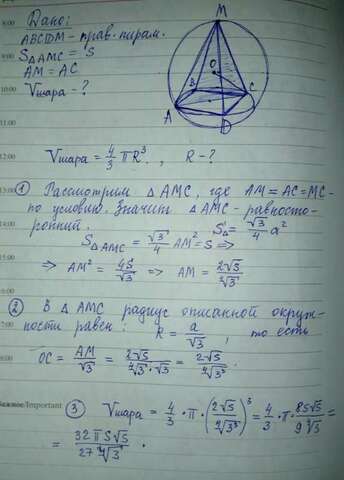 8:00
Дано:
ABCDM - прав. пирам.
9:00
S△AMC = S
AM = AC
10:00
Vшара - ?
11:00
M
O
B
C
A
D
12:00
Vшара = 4/3 πR³. , R - ?
13:00
① Рассмотрим △AMC, где AM = AC = MC -
14:00
по условию. Значит △AMC - равносто-
ронний.
S△AMC = √3/4 AM² = S ⇒
S△ = √3/4 a²
15:00
⇒ AM² = 4S/√3 ⇒ AM = 2√S/∜3
② В △AMC радиус описанной окруж-
7:00
ности равен: R = a/√3, то есть
8:00
OC = AM/√3 = 2√S/(∜3·√3) = 2√S/∜3³
Важное/Important
③ Vшара = 4/3 · π · (2√S/∜3³)³ = 4/3 · π · 8S√S/(9∜3) =
= 32πS√S/(27∜3) .